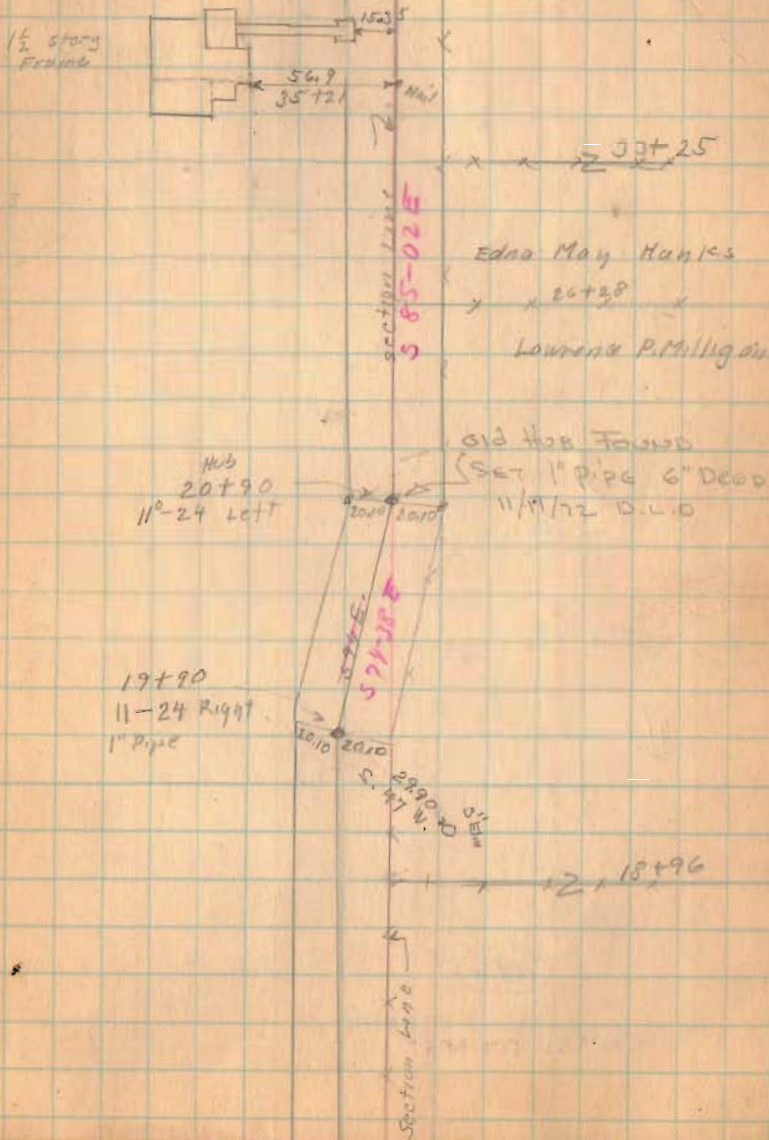 15.35
1½ story
Frame
56.9
35+21
Nail
33+25
Section Line
S 85-02 E
Edna May Hanks
26+28
Lawrence P. Milligan
Old Hub Found
Set 1" Pipe 6" Deep
11/11/72 D.L.D
Hub
20+90
11°-24 Left
20.10
20.10
S 74 E.
S 74-38 E
19+90
11-24 Right
1" Pipe
20.10
20.10
29.90
S. 47 W.
3" Elm
18+96
Section Line